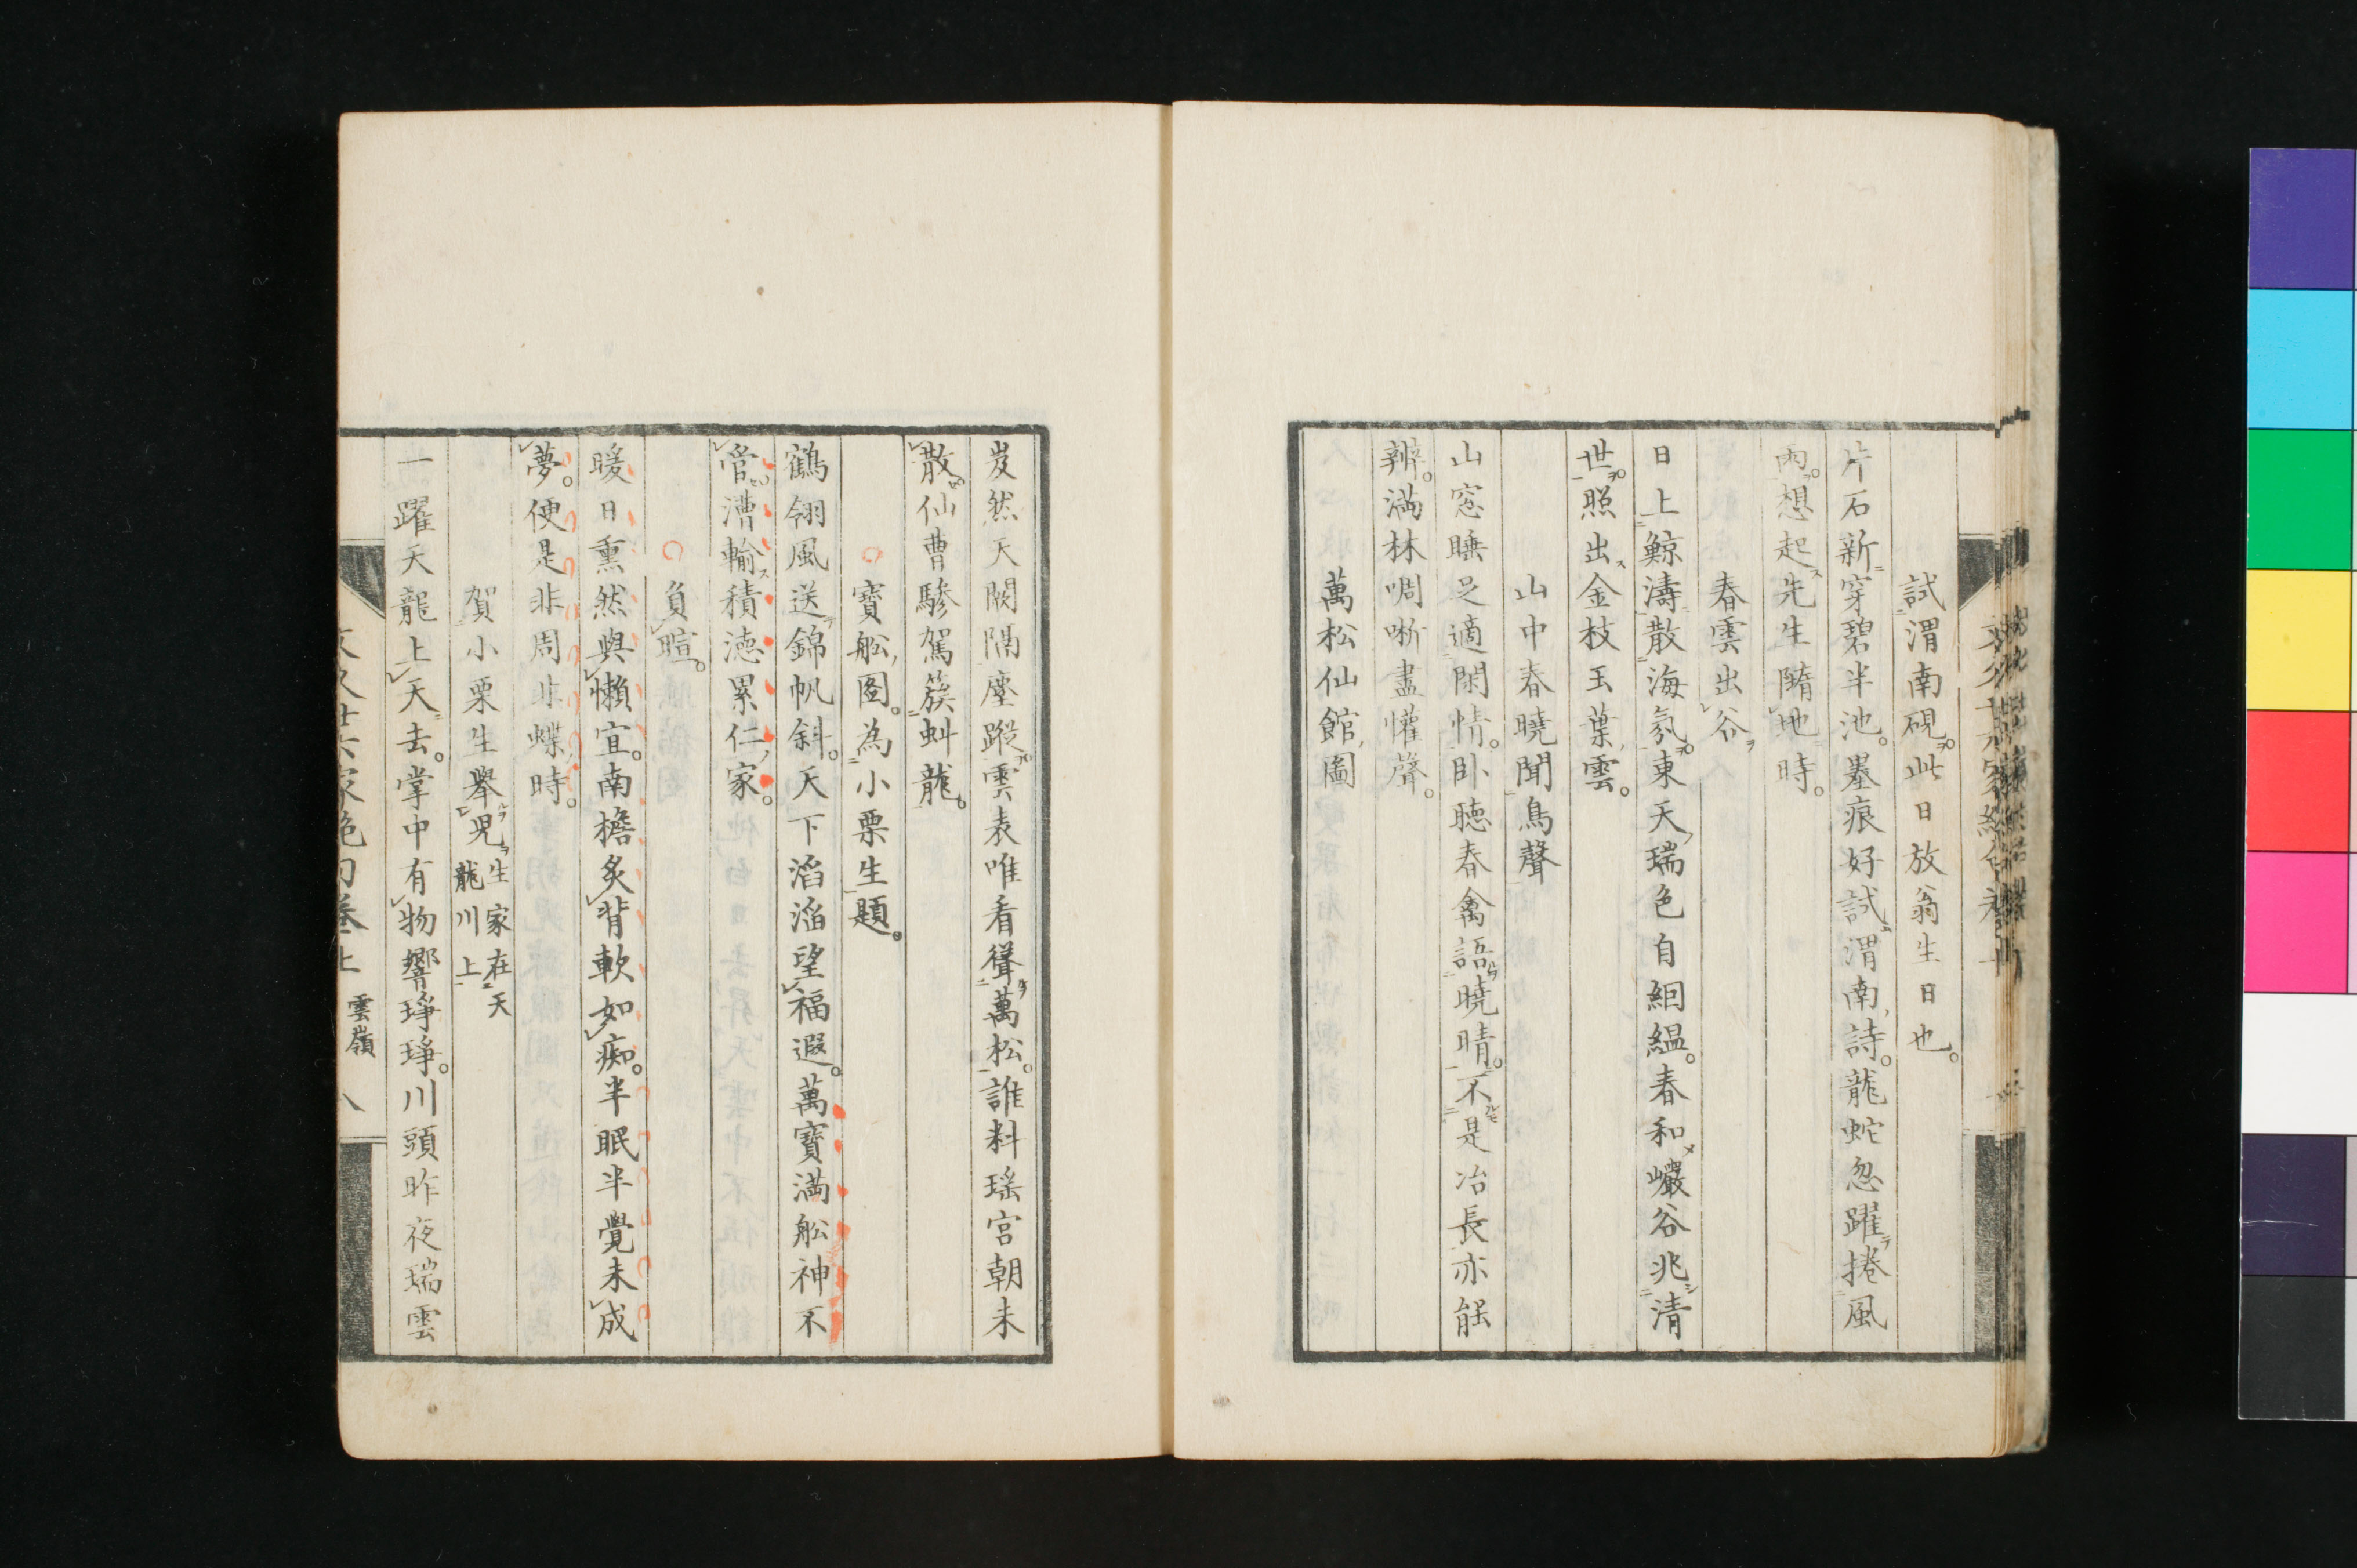 試渭南硯此日放翁生日也。
片石新穿碧半池。墨痕好試渭南詩。龍蛇忽躍捲風
雨。想起先生隋地時。
春雲出谷
日上鯨濤散海氛東天瑞色自絪縕。春和巘谷兆清
世。照出金枝玉葉雲。
山中春曉聞鳥聲
山窓睡足適閑情。卧聴春禽語曉晴。不是冶長亦能
辨。満林啁哳盡懽聲。
萬松仙館圖
岌然天闕隔塵蹤雲表唯看聳萬松。誰料瑶宮朝未
散。仙曹驂駕簇虯龍。
寶舩圖。為小栗生題。
鶴翎風送錦帆斜。天下滔滔望福遐。萬寶満舩神不
管。漕輸積徳累仁家。
負暄。
暖日熏然與懶宜。南檐炙背軟如痴。半眠半覺未成
夢。便是非周非蝶時。
賀小栗生舉児生家在天龍川上
一躍天龍上天去。掌中有物響琤琤。川頭昨夜瑞雲
文久廿六家絶句巻上 雲嶺 八